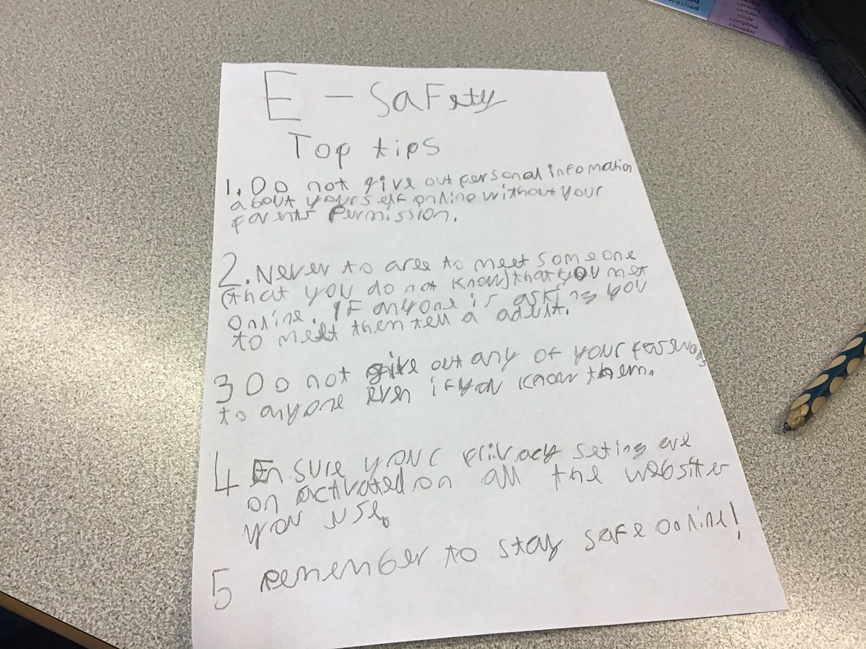 E - Safety
Top tips
1. Do not give out personal infomation
about yourself online without your
parents permission.
2. Never to aree to meet someone
(that you do not know) that you met
online. If anyone is asking you
to meet them tell a adult.
3 Do not give out any of your passwords
to anyone even if you know them.
4 Ensure your privacy seting are
on activated on all the websites
you use.
5 remember to stay safe online!